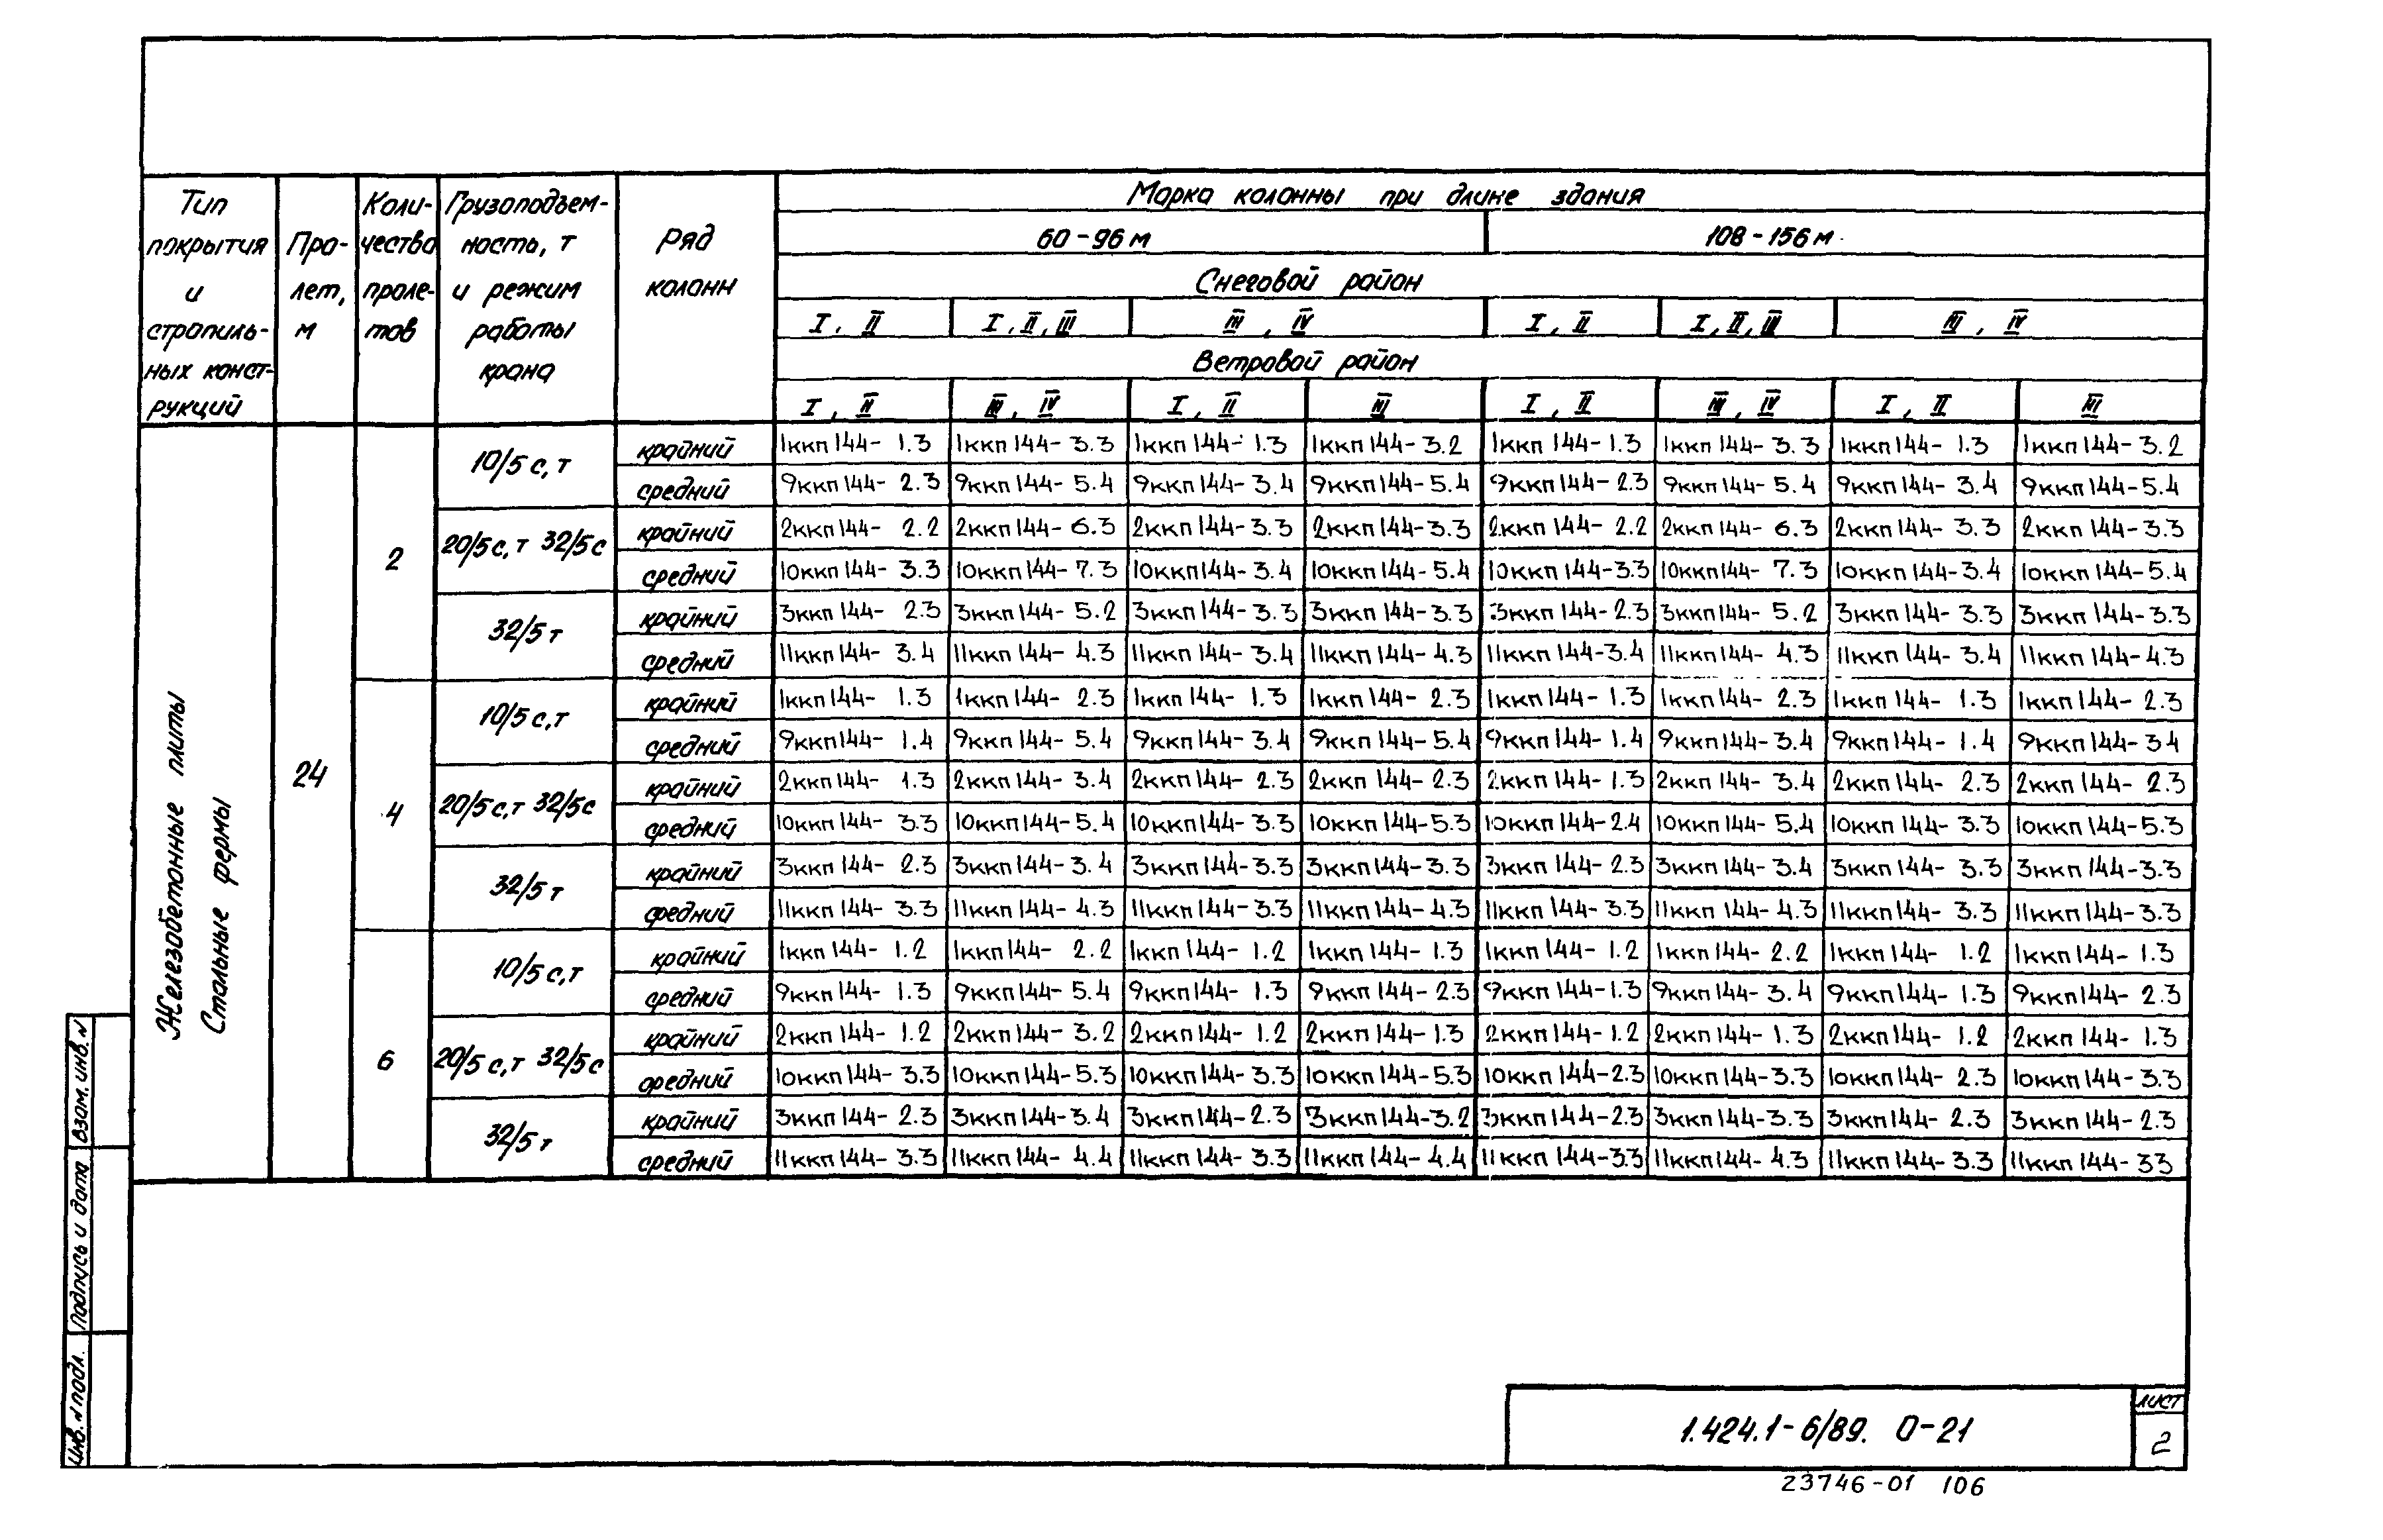 Тип покрытия и стропиль-ных конст-рукций | Про-лет, м | Коли-чество проле-тов | Грузоподъем-ность, т и режим работы крана | Ряд колонн | Марка колонны при длине здания
60-96 м | 108-156 м
Снеговой район
I, II | I, II, III | III, IV | I, II | I, II, III | III, IV
Ветровой район
I, II | III, IV | I, II | III | I, II | III, IV | I, II | III
Железобетонные плиты
Стальные фермы
24
2
10/5 с,т
крайний | 1ккп144- 1.3 | 1ккп144- 3.3 | 1ккп144- 1.3 | 1ккп144- 3.2 | 1ккп144- 1.3 | 1ккп144- 3.3 | 1ккп144- 1.3 | 1ккп144- 3.2
средний | 9ккп144- 2.3 | 9ккп144- 5.4 | 9ккп144- 3.4 | 9ккп144- 5.4 | 9ккп144- 2.3 | 9ккп144- 5.4 | 9ккп144- 3.4 | 9ккп144-5.4
20/5с,т 32/5с
крайний | 2ккп144- 2.2 | 2ккп144- 6.3 | 2ккп144-3.3 | 2ккп144-3.3 | 2ккп144- 2.2 | 2ккп144- 6.3 | 2ккп144- 3.3 | 2ккп144-3.3
средний | 10ккп144- 3.3 | 10ккп144- 7.3 | 10ккп144-3.4 | 10ккп144- 5.4 | 10ккп144-3.3 | 10ккп144- 7.3 | 10ккп144-3.4 | 10ккп144-5.4
32/5 т
крайний | 3ккп144- 2.3 | 3ккп144- 5.2 | 3ккп144- 3.3 | 3ккп144- 3.3 | 3ккп144-2.3 | 3ккп144- 5.2 | 3ккп144- 3.3 | 3ккп144-3.3
средний | 11ккп144- 3.4 | 11ккп144- 4.3 | 11ккп144- 3.4 | 11ккп144- 4.3 | 11ккп144-3.4 | 11ккп144- 4.3 | 11ккп144- 3.4 | 11ккп144-4.3
4
10/5 с,т
крайний | 1ккп144- 1.3 | 1ккп144- 2.3 | 1ккп144- 1.3 | 1ккп144- 2.3 | 1ккп144- 1.3 | 1ккп144- 2.3 | 1ккп144- 1.3 | 1ккп144- 2.3
средний | 9ккп144- 1.4 | 9ккп144- 5.4 | 9ккп144- 3.4 | 9ккп144- 5.4 | 9ккп144- 1.4 | 9ккп144-3.4 | 9ккп144- 1.4 | 9ккп144- 34
20/5с,т 32/5с
крайний | 2ккп144- 1.3 | 2ккп144- 3.4 | 2ккп144- 2.3 | 2ккп144- 2.3 | 2ккп144- 1.3 | 2ккп144- 3.4 | 2ккп144- 2.3 | 2ккп144- 2.3
средний | 10ккп144- 3.3 | 10ккп144-5.4 | 10ккп144- 3.3 | 10ккп144-5.3 | 10ккп144-2.4 | 10ккп144- 5.4 | 10ккп144- 3.3 | 10ккп144-5.3
32/5 т
крайний | 3ккп144- 2.3 | 3ккп144- 3.4 | 3ккп144-3.3 | 3ккп144-3.3 | 3ккп144- 2.3 | 3ккп144-3.4 | 3ккп144- 3.3 | 3ккп144-3.3
средний | 11ккп144- 3.3 | 11ккп144- 4.3 | 11ккп144-3.3 | 11ккп144- 4.3 | 11ккп144- 3.3 | 11ккп144- 4.3 | 11ккп144- 3.3 | 11ккп144-3.3
6
10/5 с,т
крайний | 1ккп144- 1.2 | 1ккп144- 2.2 | 1ккп144- 1.2 | 1ккп144- 1.3 | 1ккп144- 1.2 | 1ккп144- 2.2 | 1ккп144- 1.2 | 1ккп144- 1.3
средний | 9ккп144- 1.3 | 9ккп144- 5.4 | 9ккп144- 1.3 | 9ккп144- 2.3 | 9ккп144-1.3 | 9ккп144- 3.4 | 9ккп144- 1.3 | 9ккп144- 2.3
20/5с,т 32/5с
крайний | 2ккп144- 1.2 | 2ккп144- 3.2 | 2ккп144- 1.2 | 2ккп144- 1.3 | 2ккп144-1.2 | 2ккп144- 1.3 | 2ккп144- 1.2 | 2ккп144- 1.3
средний | 10ккп144- 3.3 | 10ккп144-5.3 | 10ккп144- 3.3 | 10ккп144-5.3 | 10ккп144-2.3 | 10ккп144-3.3 | 10ккп144- 2.3 | 10ккп144- 3.3
32/5 т
крайний | 3ккп144- 2.3 | 3ккп144-3.4 | 3ккп144-2.3 | 3ккп144-3.2 | 3ккп144-23 | 3ккп144-3.3 | 3ккп144- 2.3 | 3ккп144- 2.3
средний | 11ккп144- 3.3 | 11ккп144- 4.4 | 11ккп144- 3.3 | 11ккп144- 4.4 | 11ккп144-3.3 | 11ккп144- 4.3 | 11ккп144- 3.3 | 11ккп144- 33
Взам. инв. N
Подпись и дата
Инв. N подл.
1.424.1-6/89. 0-21
лист
2
23746-01 106